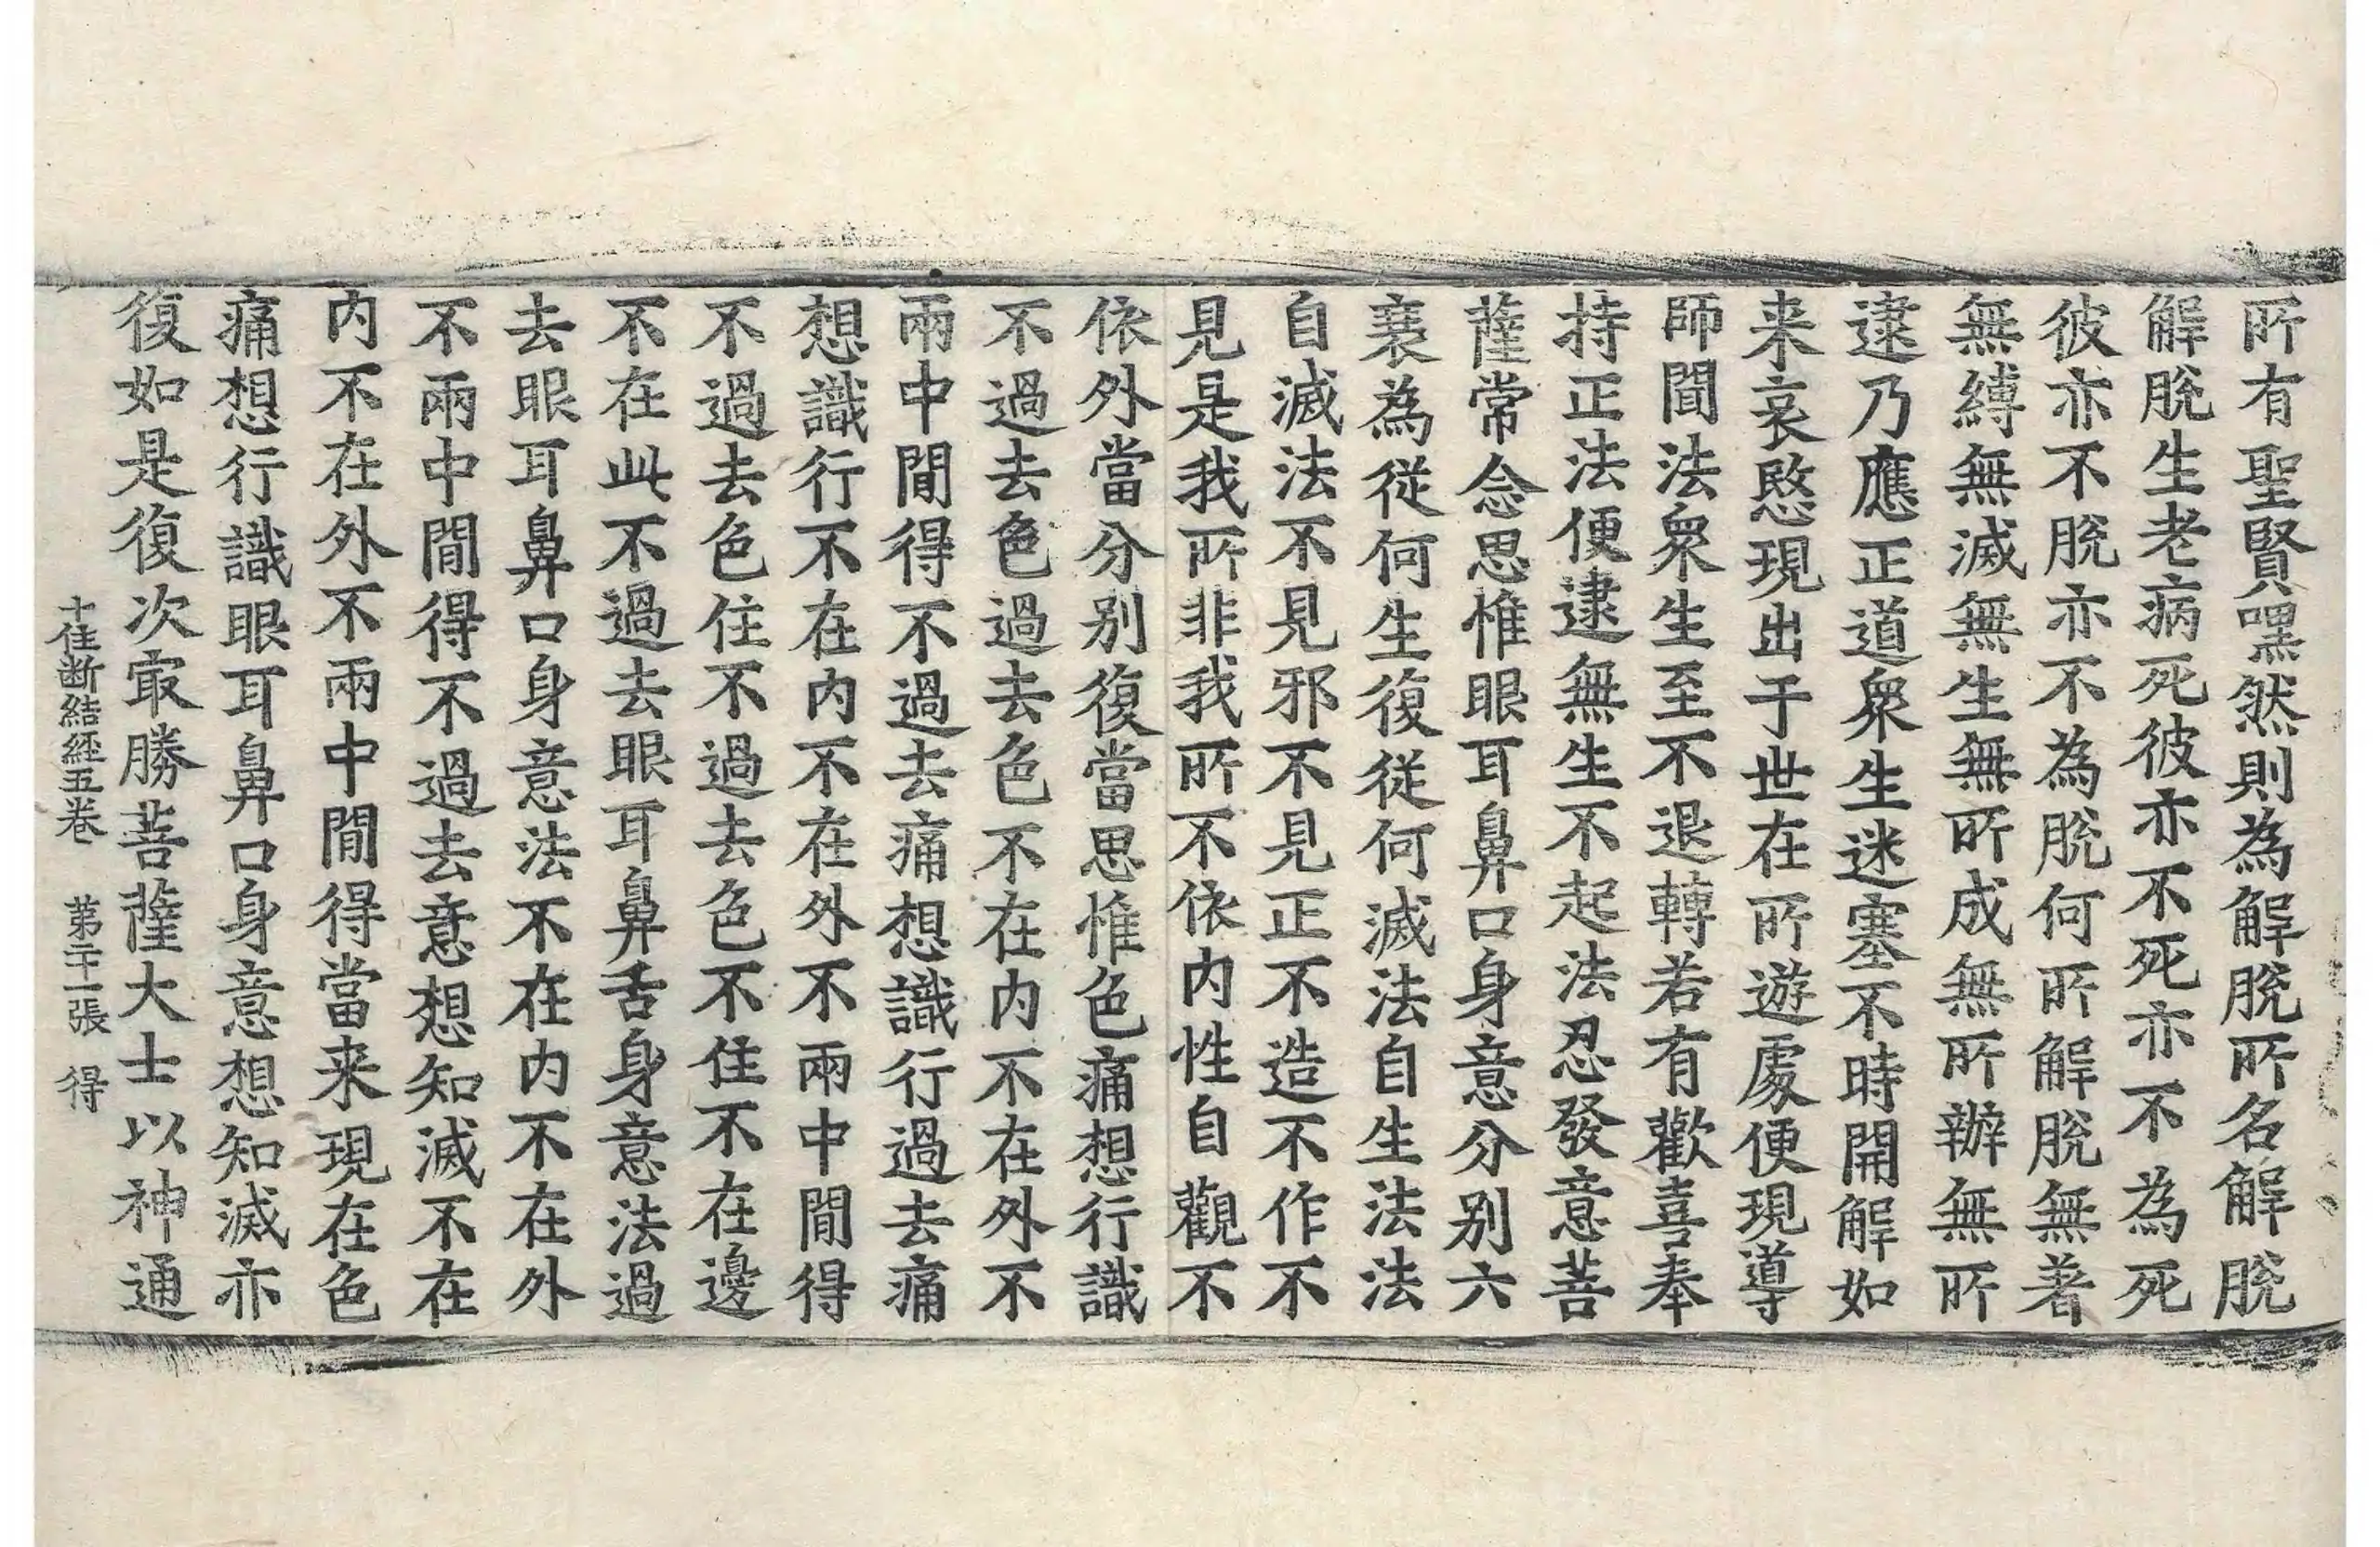 所有聖賢嘿然則為解脫所名解脫
解脫生老病死彼亦不死亦不為死
彼亦不脫亦不為脫何所解脫無著
無縛無滅無生無所成無所辦無所
逮乃應正道衆生迷塞不時開解如
来哀愍現出于世在所遊處便現導
師聞法衆生至不退轉若有歡喜奉
持正法便逮無生不起法忍發意菩
薩常念思惟眼耳鼻口身意分别六
衰為從何生復從何滅法自生法法
自滅法不見邪不見正不造不作不
見是我所非我所不依内性自觀不
依外當分别復當思惟色痛想行識
不過去色過去色不在内不在外不
兩中閒得不過去痛想識行過去痛
想識行不在内不在外不兩中閒得
不過去色住不過去色不住不在邊
不在此不過去眼耳鼻舌身意法過
去眼耳鼻口身意法不在内不在外
不兩中閒得不過去意想知滅不在
内不在外不兩中閒得當来現在色
痛想行識眼耳鼻口身意想知滅亦
復如是復次㝡勝菩薩大士以神通
十住断結経五巻 第二十一張 得